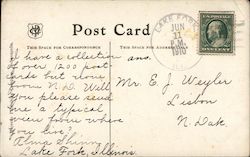 Post Card
THIS SPACE FOR CORRESPONDENCE
THIS SPACE FOR ADDRESS
LAKE FORK
JUN
11
1910
I have a collection ans.
of over 1200 post
cards but none
from N. D. Will
you please send
me a typical
view from where
you live?
Lake Fork, Illinois.
Mr. E. J. Weyler
Lisbon
N. Dak